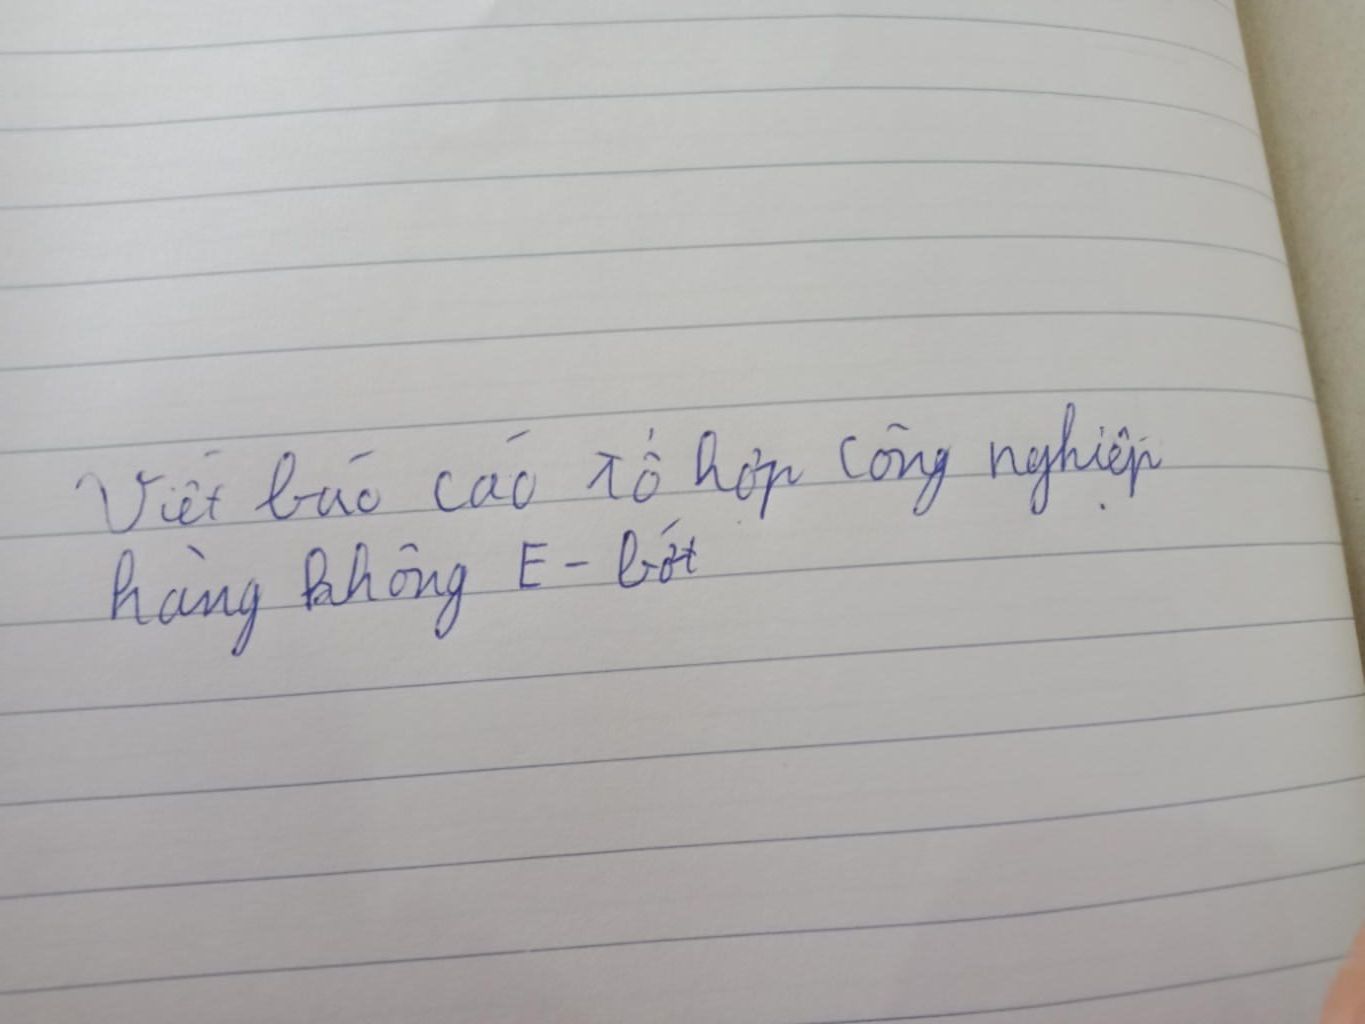 Viết báo cáo tổ hợp công nghiệp
hàng không E - bớt